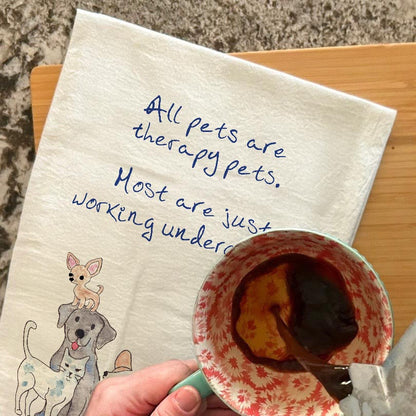 All pets are
therapy pets.
Most are just
working